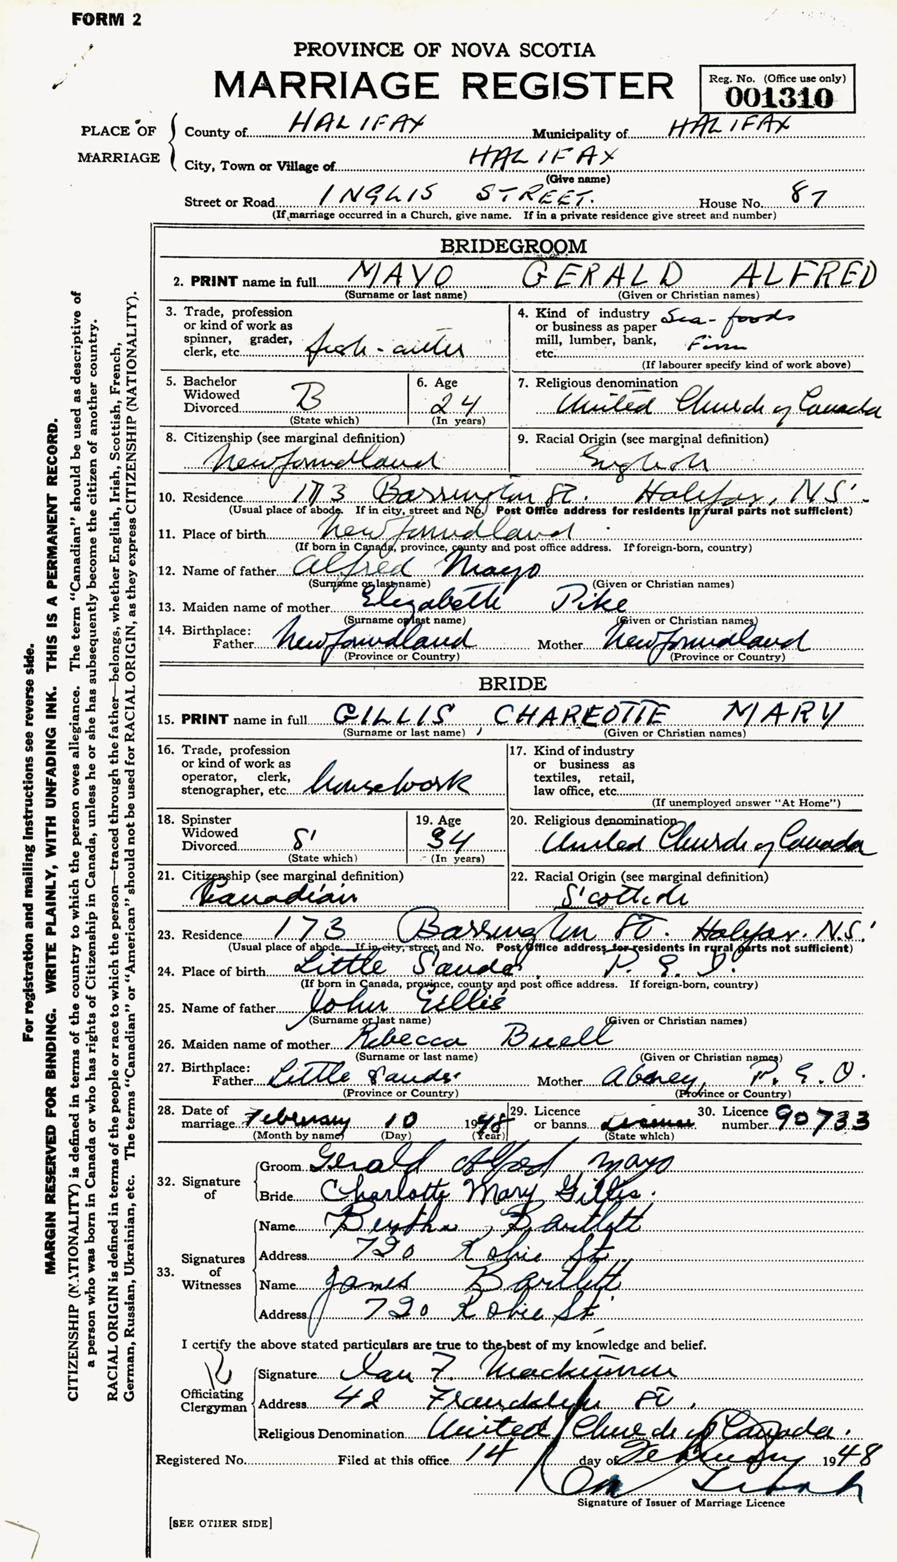 FORM 2
PROVINCE OF NOVA SCOTIA
MARRIAGE REGISTER
Reg. No. (Office use only)
001310
PLACE OF MARRIAGE
County of HALIFAX Municipality of HALIFAX
City, Town or Village of HALIFAX
(Give name)
Street or Road INGLIS STREET. House No. 87
(If marriage occurred in a Church, give name. If in a private residence give street and number)
BRIDEGROOM
2. PRINT name in full MAYO GERALD ALFRED
(Surname or last name) (Given or Christian names)
3. Trade, profession or kind of work as spinner, grader, clerk, etc. fish-cutter
4. Kind of industry or business as paper mill, lumber, bank, etc. Sea-foods Firm
(If labourer specify kind of work above)
5. Bachelor Widowed Divorced B
(State which)
6. Age 24
(In years)
7. Religious denomination United Church of Canada
8. Citizenship (see marginal definition) Newfoundland
9. Racial Origin (see marginal definition) English
10. Residence 173 Barrington St. Halifax, N.S.
(Usual place of abode. If in city, street and No. Post Office address for residents in rural parts not sufficient)
11. Place of birth Newfoundland
(If born in Canada, province, county and post office address. If foreign-born, country)
12. Name of father Alfred Mayo
(Surname or last name) (Given or Christian names)
13. Maiden name of mother Elizabeth Pike
(Surname or last name) (Given or Christian names)
14. Birthplace: Father Newfoundland Mother Newfoundland
(Province or Country) (Province or Country)
BRIDE
15. PRINT name in full GILLIS CHARLOTTE MARY
(Surname or last name) (Given or Christian names)
16. Trade, profession or kind of work as operator, clerk, stenographer, etc. housework
17. Kind of industry or business as textiles, retail, law office, etc.
(If unemployed answer "At Home")
18. Spinster Widowed Divorced S
(State which)
19. Age 34
(In years)
20. Religious denomination United Church of Canada
21. Citizenship (see marginal definition) Canadian
22. Racial Origin (see marginal definition) Scottish
23. Residence 173 Barrington St. Halifax. N.S.
(Usual place of abode. If in city, street and No. Post Office address for residents in rural parts not sufficient)
24. Place of birth Little Sands, P.E.I.
(If born in Canada, province, county and post office address. If foreign-born, country)
25. Name of father John Gillis
(Surname or last name) (Given or Christian names)
26. Maiden name of mother Rebecca Buell
(Surname or last name) (Given or Christian names)
27. Birthplace: Father Little Sands Mother P.E.I.
(Province or Country) (Province or Country)
28. Date of marriage February 10 1948
(Month by name) (Day) (Year)
29. Licence or banns License
(State which)
30. Licence number 90733
32. Signature of
Groom Gerald Alfred Mayo
Bride Charlotte Mary Gillis.
33. Signatures of Witnesses
Name Bertha Bartlett
Address 720 Robie St.
Name James Bartlett
Address 720 Robie St
I certify the above stated particulars are true to the best of my knowledge and belief.
Officiating Clergyman
Signature Ian F. MacKinnon
Address 42 St.
Religious Denomination United Church of Canada.
Registered No. Filed at this office 14 day of February 1948
Signature of Issuer of Marriage Licence
[SEE OTHER SIDE]
For registration and mailing instructions see reverse side.
MARGIN RESERVED FOR BINDING. WRITE PLAINLY, WITH UNFADING INK. THIS IS A PERMANENT RECORD.
CITIZENSHIP (NATIONALITY) is defined in terms of the country to which the person owes allegiance. The term "Canadian" should be used as descriptive of
a person who was born in Canada or who has rights of Citizenship in Canada, unless he or she has subsequently become the citizen of another country.
RACIAL ORIGIN is defined in terms of the people or race to which the person—traced through the father—belongs, whether English, Irish, Scottish, French,
German, Russian, Ukrainian, etc. The terms "Canadian" or "American" should not be used for RACIAL ORIGIN, as they express CITIZENSHIP (NATIONALITY).